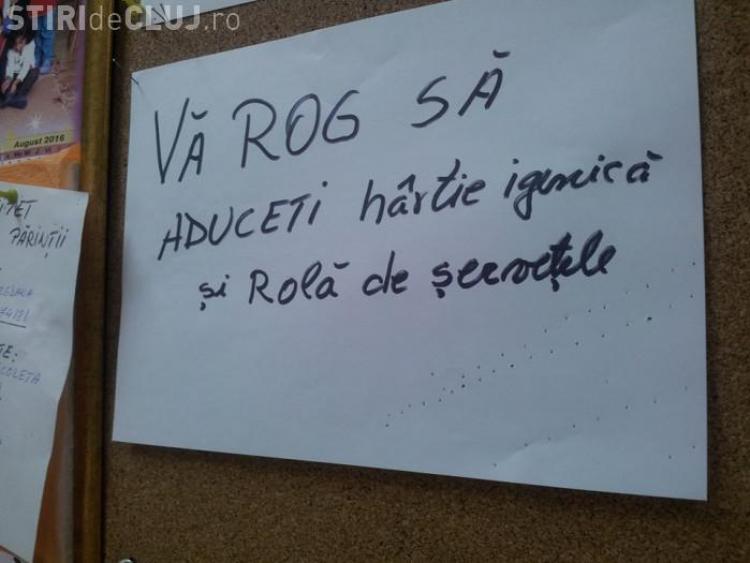 STIRIdeCLUJ.ro
August 2016
PĂRINȚII
COLETA
VĂ ROG SĂ
ADUCETI hârtie igenică
și Rolă de șervețele